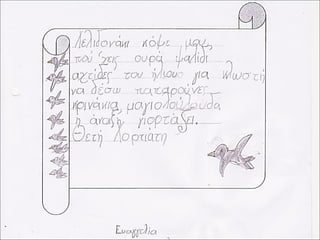 Χελιδονάκι κόψε μας
που 'χεις ουρά ψαλίδι
αχτίδες του ήλιου για κλωστή
να δέσω παπαρούνες
κρινάκια μαγιολούλουδα
η άνοιξη γιορτάζει.
Θέτη Χορτιάτη
Ευαγγελία